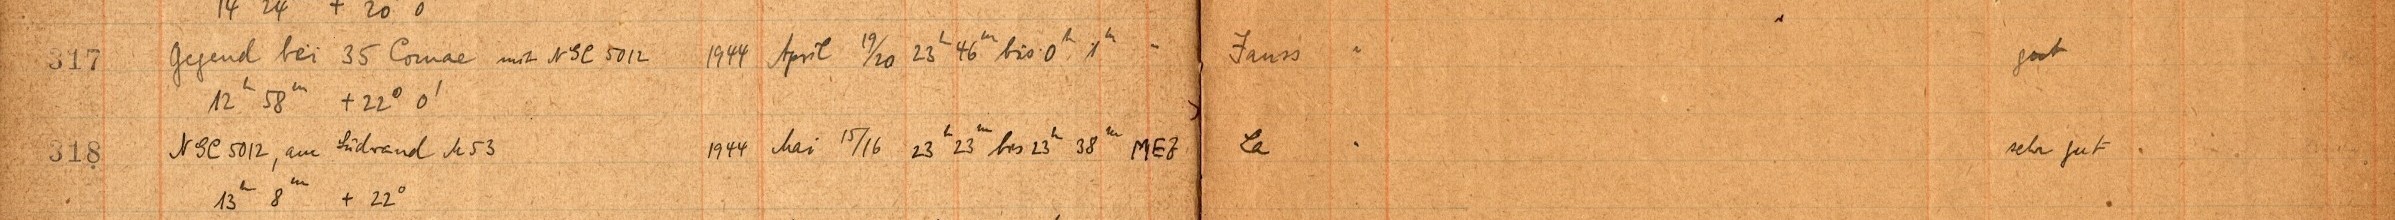 14 24 + 20 0
317 Gegend bei 35 Comae mit NGC 5012 1944 April 19/20 23h 46m bis 0h 1m " Jauss " gut
12h 58m + 22° 0'
318 NGC 5012, am Südrand M 53 1944 Mai 15/16 23h 23m bis 23h 38m MEZ La " sehr gut
13h 8m + 22°